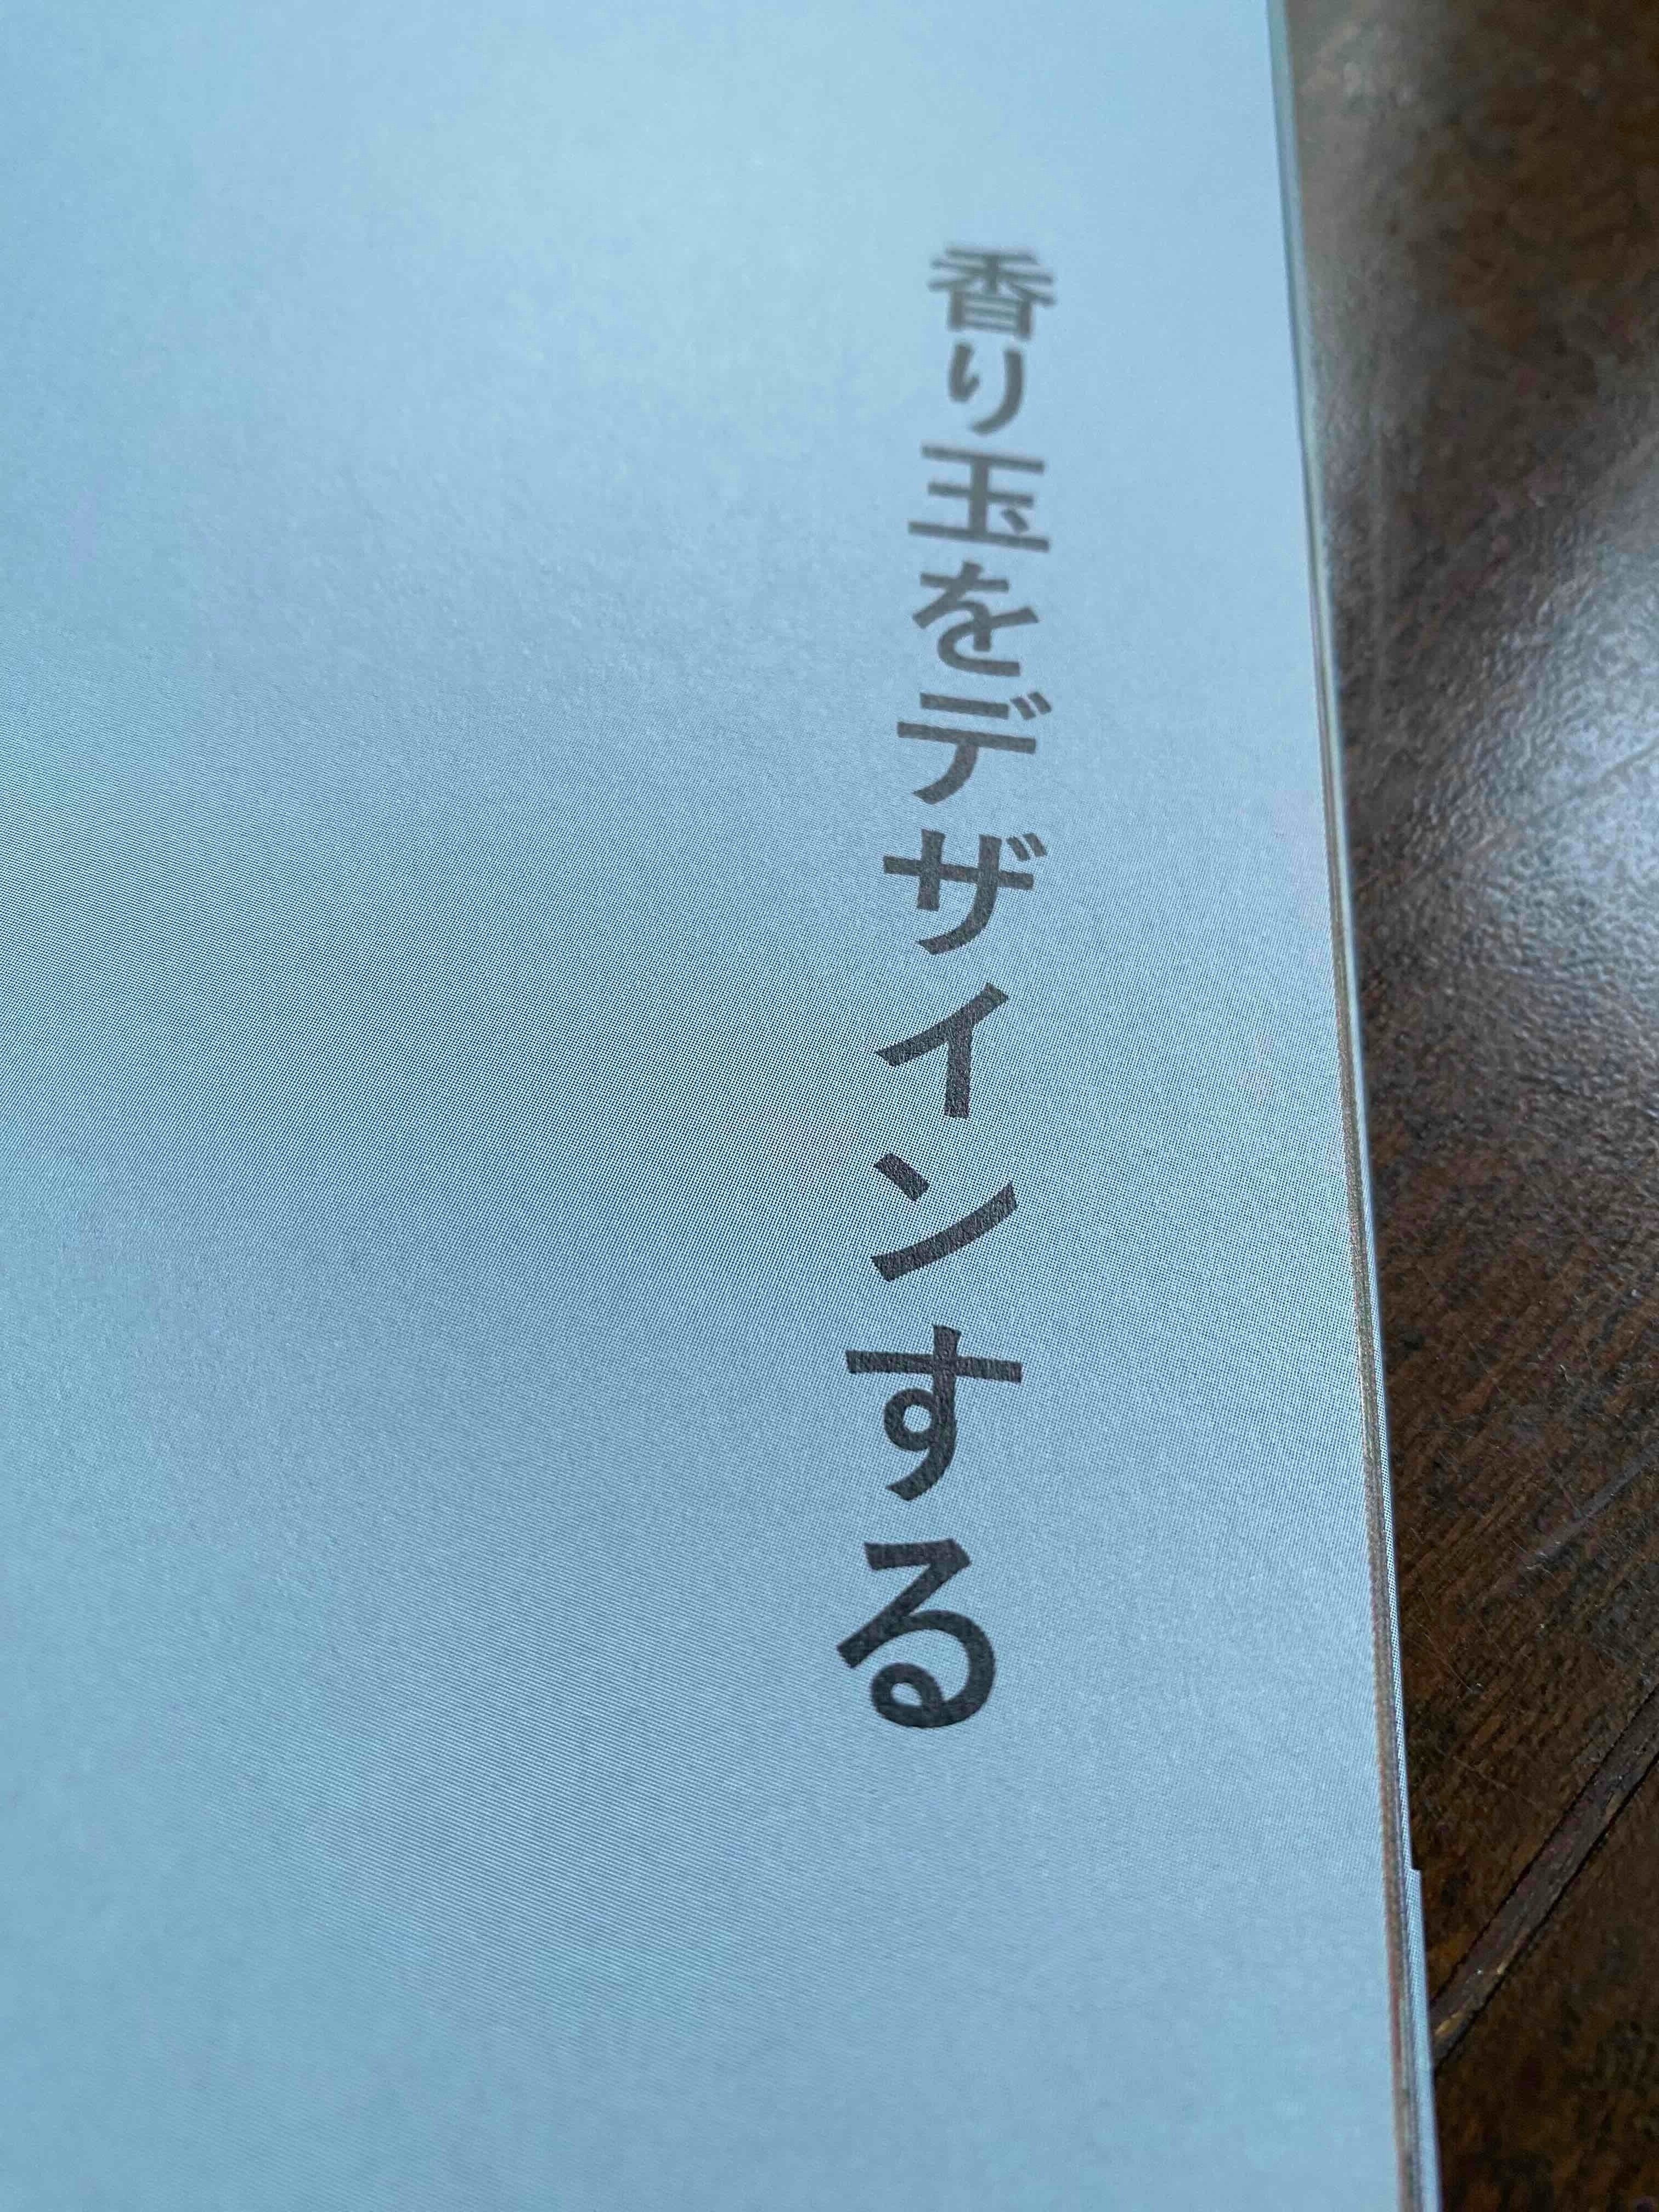 香り玉をデザインする